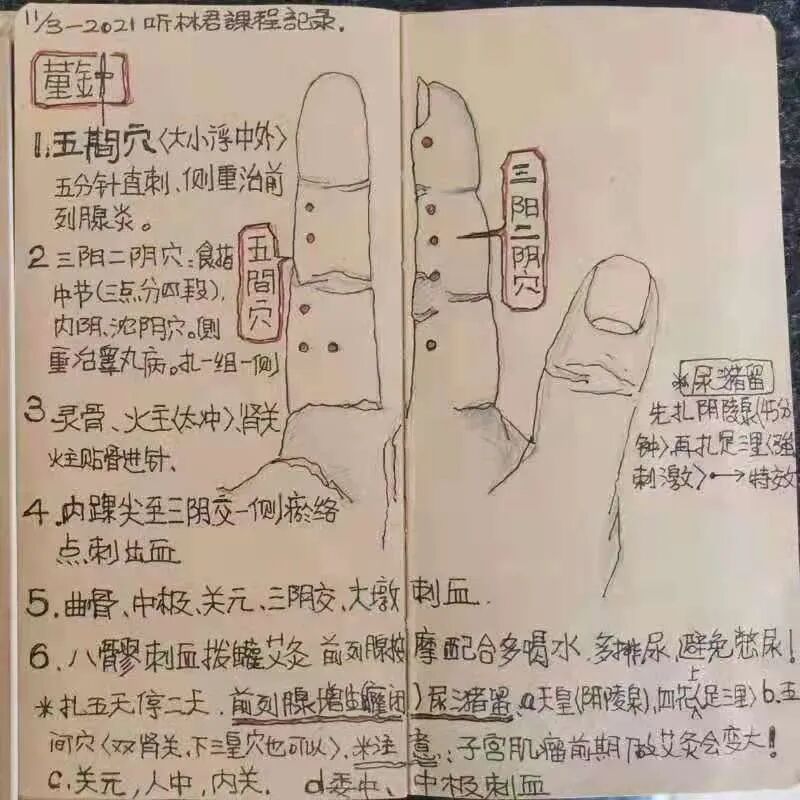 11/3-2021 听林君課程記录.
董針
1.五間穴〈大小浮中外〉
五分针直刺、侧重治前
列腺炎。
2 三阳二阴穴:食指
中节(三点分四段),
内阴、浓阴穴。側
重治睾丸病。扎一组一侧
五間穴
三阳二阴穴
3.灵骨、火主〈太冲〉、肾关
火主贴骨进针.
*尿潴留
先扎阴陵泉(45分
钟〉,再扎足三里〈强
刺激〉←→特效
4.内踝尖至三阴交一侧瘀络
点刺出血
5.曲骨、中极、关元、三阴交、大墩刺血.
6.八髎刺血拨罐艾灸 前列腺按摩配合多喝水.多排尿,避免憋尿!
*扎五天停二天.前列腺增生癃闭)尿潴留.a天皇(阴陵泉),四花上〈足三里〉b.五
间穴〈双肾关、下三皇穴也可以〉.※注意:子宫肌瘤前期做艾灸会变大!
c.关元,人中,内关. d委中、中极刺血